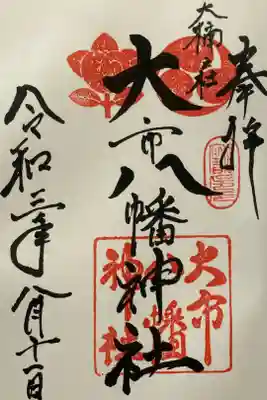 奉拝
大楠在
大市八幡神社
大市
八幡
神社
令和三年八月十一日